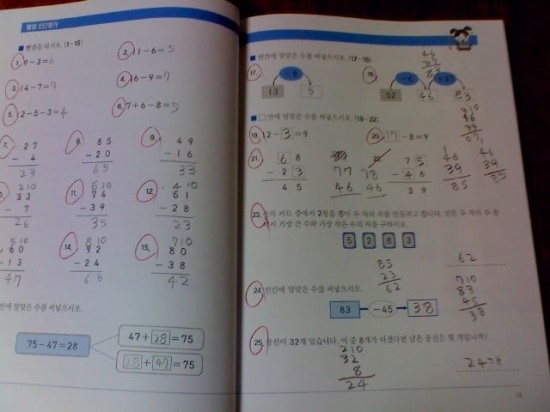 뺄셈을 하시오. (1~15)
1. 9-3=6
2. 11-6=5
3. 14-7=7
4. 16-9=7
5. 12-5-3=4
6. 7+6-8=5
7. 27
- 4
23
8. 85
-20
65
9. 49
-16
33
210
33
- 7
26
11. 610
74
-39
35
12. 410
51
-28
23
510
60
-13
47
14. 92
-24
68
15. 710
80
-38
42
빈칸에 알맞은 수를 써넣으시오.
75-47=28
47+28=75
28+47=75
빈칸에 알맞은 수를 써넣으시오. (17~18)
17. -8
13 5
18.
52 46 83
□ 안에 알맞은 수를 써넣으시오. (19~22)
19. 12-3=9
20. 17-8=9
21. 68
-23
45
-46
숫자 카드 중에서 2장을 뽑아 두 자리 수를 만들려고 합니다. 만든 두 자리 수 중
에서 가장 큰 수와 가장 작은 수의 차를 구하시오.
5 2 8 3
85
23
62
62
24. 빈칸에 알맞은 수를 써넣으시오.
83 -45 38
710
83
45
38
25. 풍선이 32개 있습니다. 이 중 8개가 터졌다면 남은 풍선은 몇 개입니까?
210
32
8
24
24개